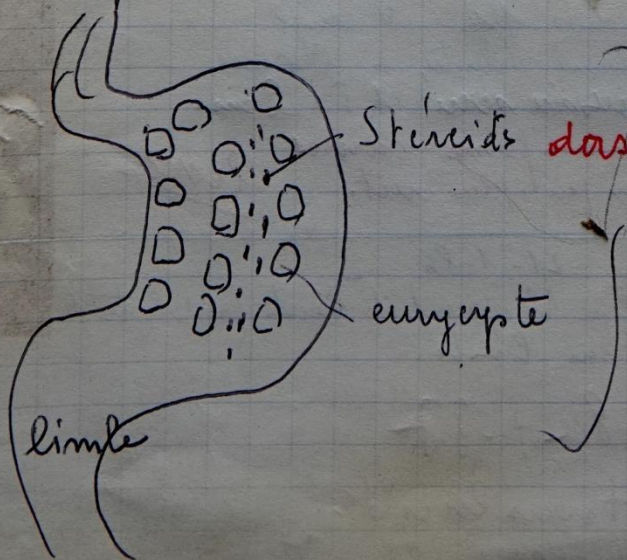 Stéreids dors
eurycyste
limbe